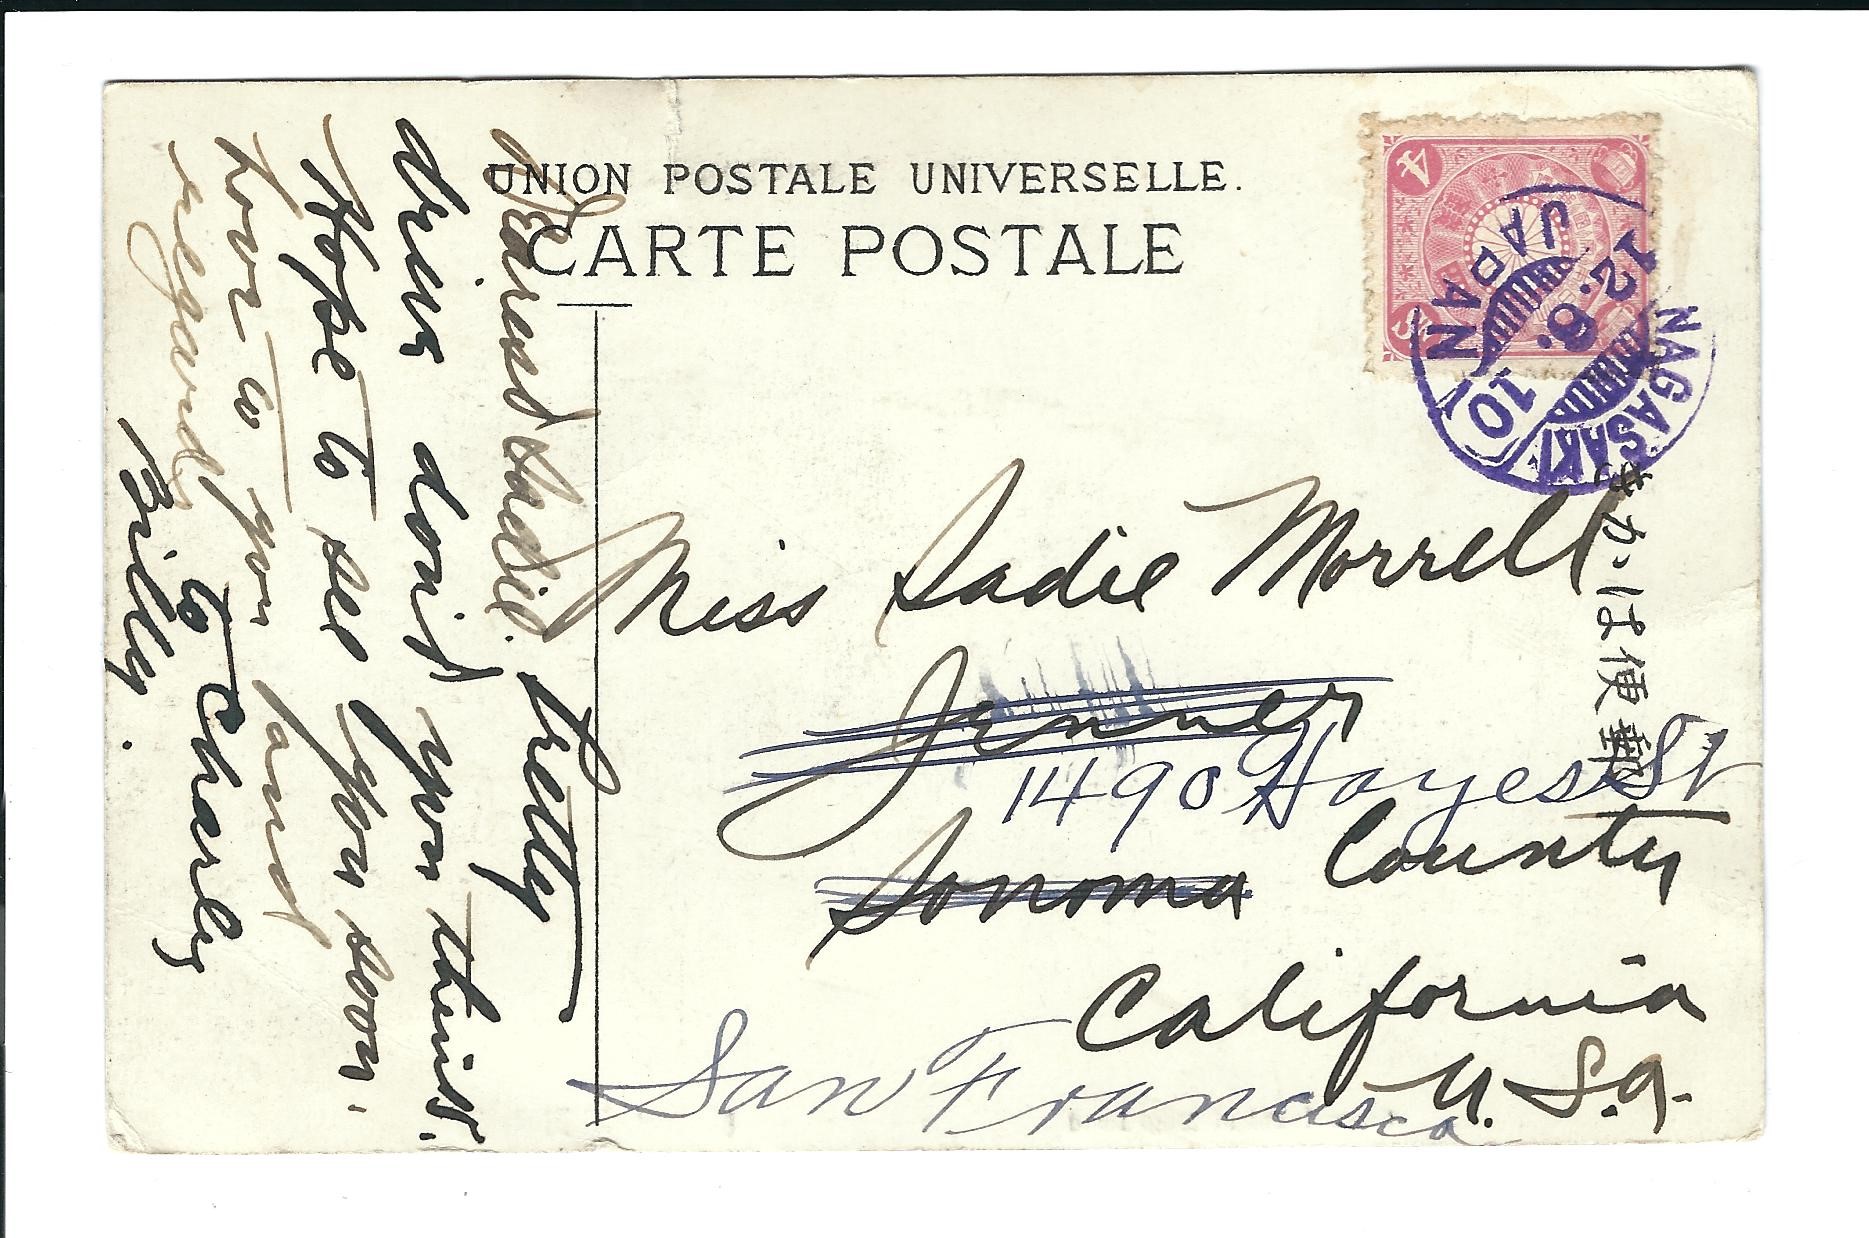 UNION POSTALE UNIVERSELLE.
CARTE POSTALE
4
NAGASAKI
12.6.10
JAPAN
郵便はかき
Miss Sadie Morrell
Jenner
1490 Hayes St
Sonoma County
California
U.S.A.
San Francisco
Dearest Sadie. Pretty
drive don't you think.
Hope to see you soon.
Love to you and
regards to Charley
Billy.